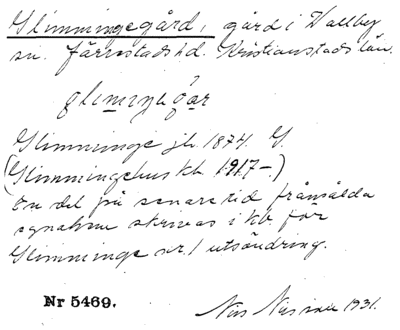 Glimmingegård, gård i Vallby
sn. Järrestads hd. Kristianstads län.
glimiŋegar
Glimminge jb. 1874. G.
(Glimmingehus kb. 1917–.)
En del på senare tid frånsålda
egnahem skrivas i kb. för
Glimminge nr. 1 utsöndring.
Nr 5469.
Nils 1931.